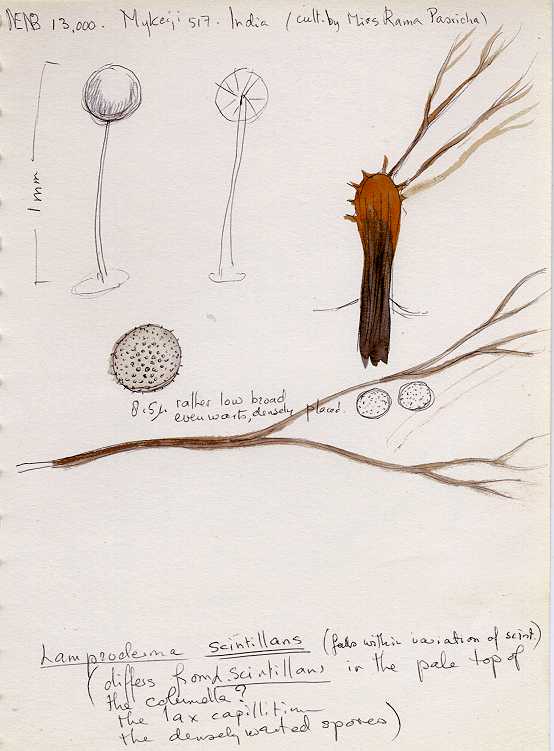 NENB 13,000. Mykeiji 517. India (cult. by Miss Rama Pasricha)
1 mm
8.5µ rather low broad
even warts, densely placed.
Lamproderma scintillans (falls within variation of scint.)
(differs from L. scintillans in the pale top of
the columella?
the lax capillitium
the densely warted spores)